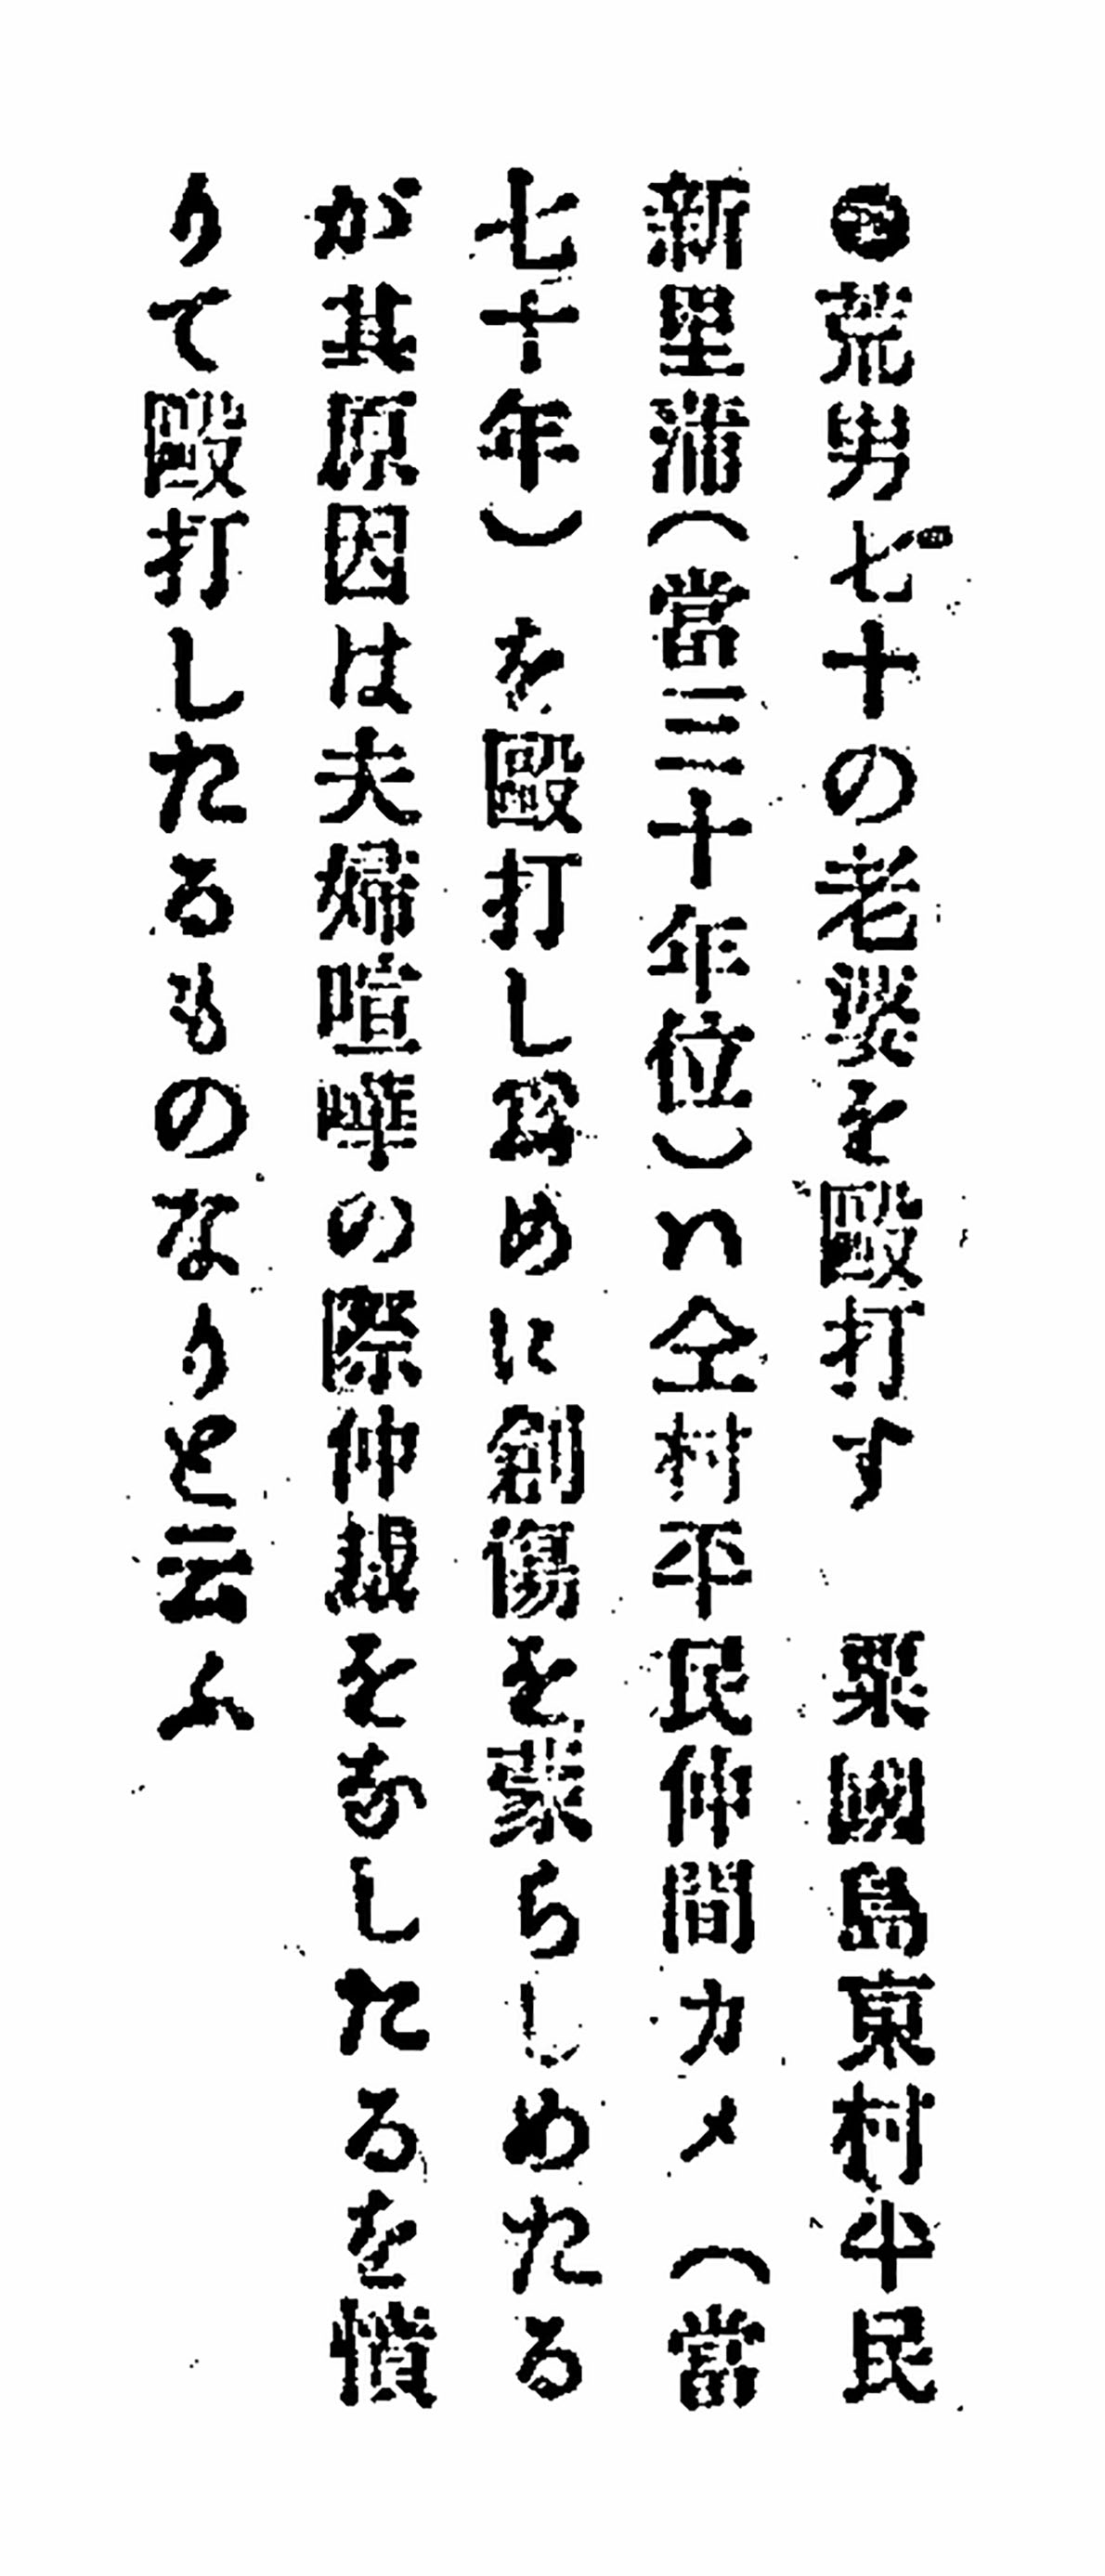 ●荒男七十の老婆を毆打す　粟國島東村平民
新垣蒲(當三十年位)ハ仝村平民仲間カメ(當
七十年)を毆打し爲めに創傷を蒙らしめたる
が其原因は夫婦喧嘩の際仲裁をなしたるを憤
りて毆打したるものなりと云ふ